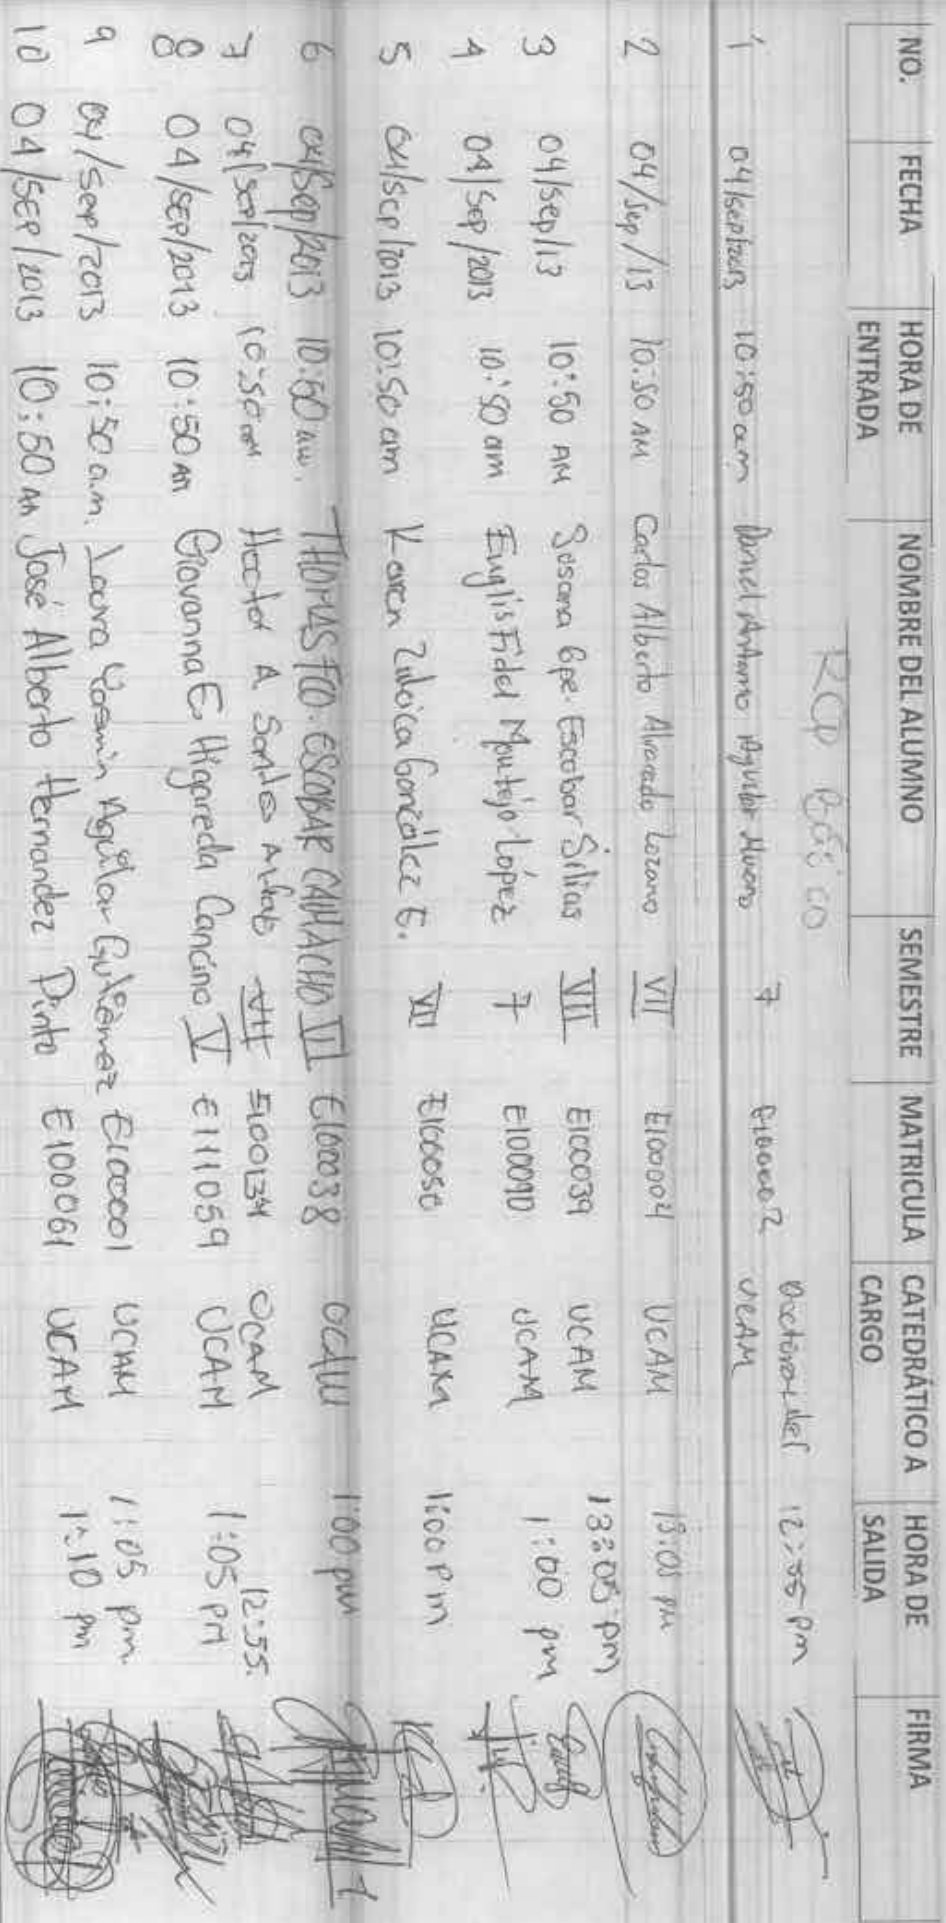 NO. FECHA HORA DE ENTRADA NOMBRE DEL ALUMNO SEMESTRE MATRICULA CATEDRÁTICO A CARGO HORA DE SALIDA FIRMA
RCP Básico
1 04/sep/2013 10:50 am Antonio Aguilar 7 E100002 UCAM 12:55 pm
2 04/sep/13 10:50 AM Carlos Alberto Alvarado Lozano VII E100004 UCAM
3 04/sep/13 10:50 AM Susana Gpe. Escobar Silias VII E100039 UCAM 13:05 pm
4 04/sep/2013 10:50 am Englis Fidel Montejo López 7 E100090 UCAM 1:00 pm
5 04/sep/2013 10:50 am Karen Zuleica González E. VII E100050 UCAM 1:00 pm
6 04/sep/2013 10:50 am. THOMAS FCO. ESCOBAR CAMACHO VII E100038 UCAM 1:00 pm
7 04/sep/2013 10:50 am Hector A VII E100134 UCAM 12:55.
8 04/SEP/2013 10:50 AM Giovanna E. Higareda Cancino V E111059 UCAM 1:05 PM
9 04/sep/2013 10:50 a.m. Laura Yasmin Aguilar Gutiérrez E100001 UCAM 1:05 pm.
10 04/SEP/2013 10:50 AM José Alberto Hernandez Pinto E100061 UCAM 1:10 pm